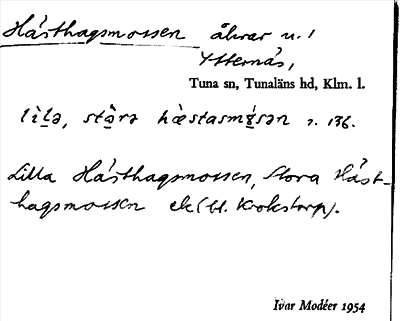 Hästhagsmossen åkrar u. /
Ytternäs,
Tuna sn, Tunaläns hd, Klm. l.
lìlə, stòrə hæ̀stasmɷ́sən s. 136.
Lilla Hästhagsmossen, Stora Häst-
hagsmossen ek (bl. Krokstorp).
Ivar Modéer 1954